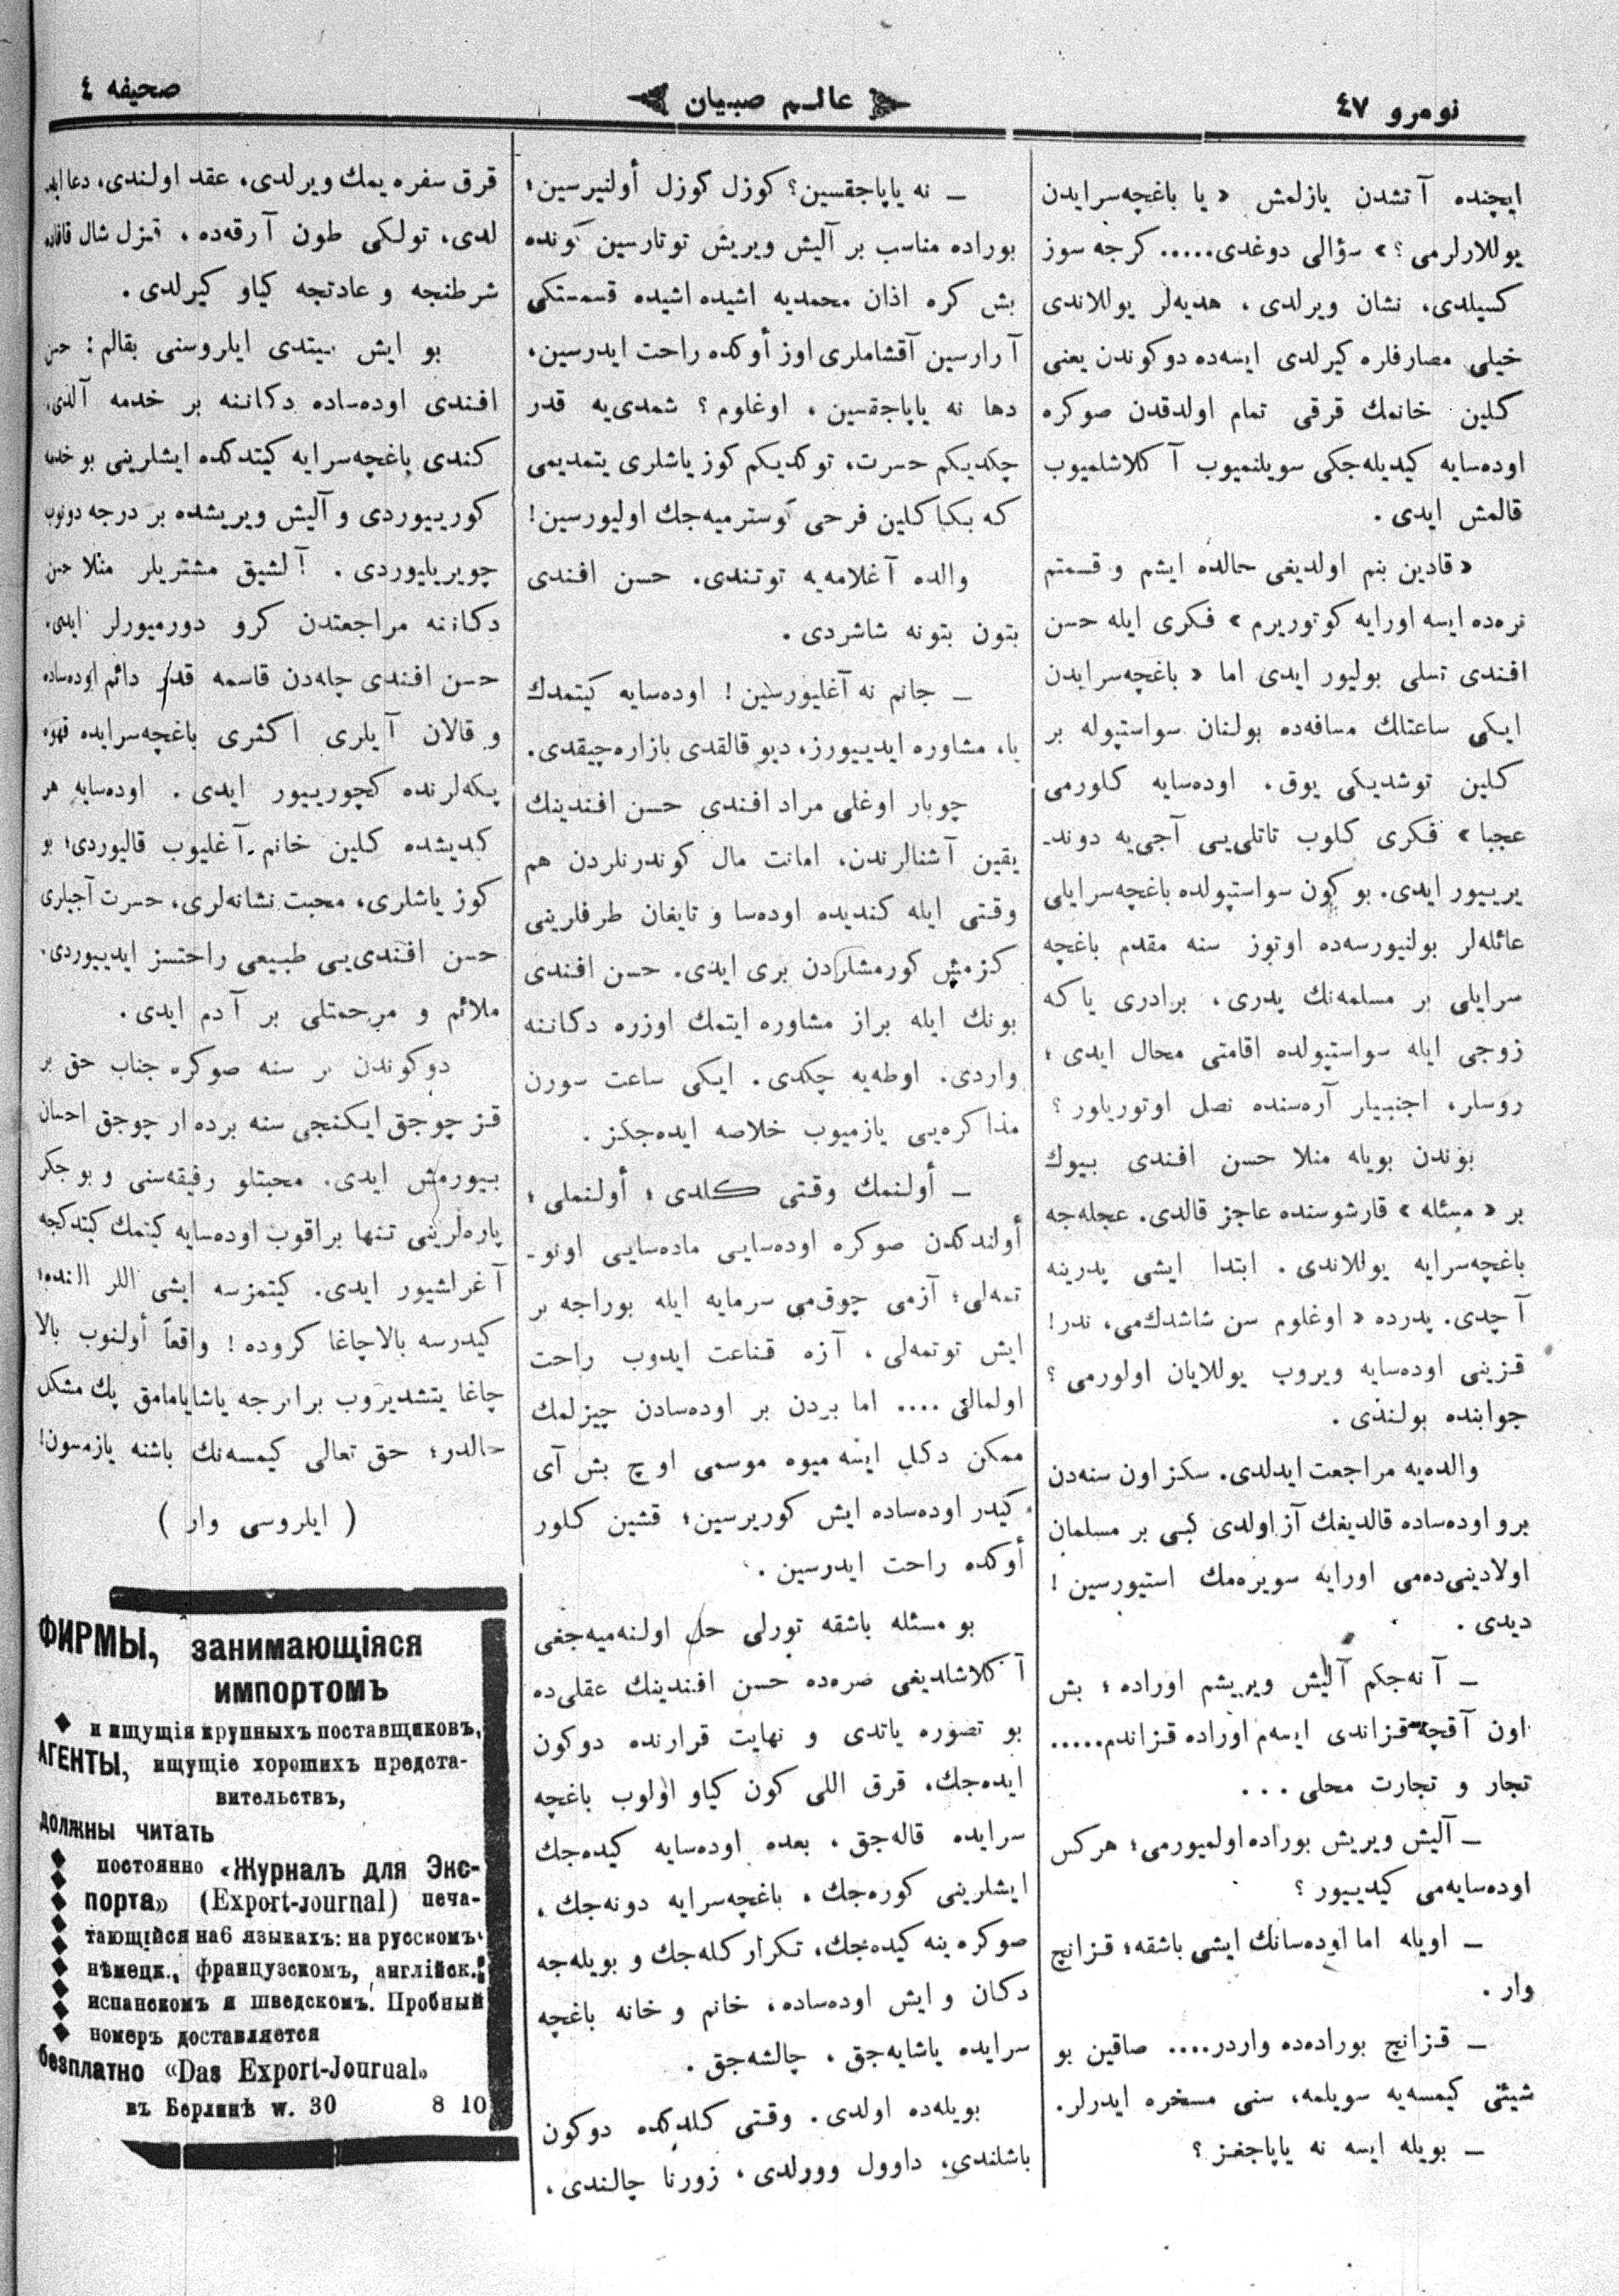 نومرو ٤٧
عالم صبيان
صحيفه ٤
ايچنده آتشدن يازلمش «يا باغچه‌سرايدن
يوللارلرمى؟» سؤالى دوغدى..... كرجه سوز
كسيلدى، نشان ويرلدى، هديه‌لر يوللاندى
خيلى مصارفلره كيرلدى ايسه‌ده دوكوندن يعنى
كلين خانمك قرقى تمام اولدقدن صوكره
اوده‌سايه كيديله‌جكى سويلنميوب آكلاشلميوب
قالمش ايدى.
«قادين بنم اولديغى حالده ايشم و قسمتم
نره‌ده ايسه اورايه كوتوريرم» فكرى ايله حسن
افندى تسلى بوليور ايدى اما «باغچه‌سرايدن
ايكى ساعتلك مسافه‌ده بولنان سواستپوله بر
كلين توشديكى يوق، اوده‌سايه كلورمى
عجبا» فكرى كلوب تاتلى‌يى آجى‌يه دوند-
يرييور ايدى. بو كون سواستپولده باغچه‌سرايلى
عائله‌لر بولنيورسه‌ده اوتوز سنه مقدم باغچه
سرايلى بر مسلمه‌نك پدرى، برادرى ياكه
زوجى ايله سواستپولده اقامتى محال ايدى؛
روسلر، اجنبيلر آره‌سنده نصل اوتوريلور؟
بوندن بويله منلا حسن افندى بيوك
بر «مسئله» قارشوسنده عاجز قالدى. عجله‌جه
باغچه‌سرايه يوللاندى. ابتدا ايشى پدرينه
آچدى. پدرده «اوغلوم سن شاشدك‌مى، ندر!
قزينى اوده‌سايه ويروب يوللايان اولورمى؟
جوابنده بولندى.
والده‌يه مراجعت ايدلدى. سكز اون سنه‌دن
برو اوده‌ساده قالديغك آز اولدى كبى بر مسلمان
اولادينى‌ده‌مى اورايه سويره‌مك استيورسين!
ديدى.
ـ آنه‌جكم آليش ويريشم اوراده؛ بش
اون آقچه قزاندى ايسه‌م اوراده قزاندم.....
تجار و تجارت محلى...
ـ آليش ويريش بوراده اولميورمى؛ هركس
اوده‌سايه‌مى كيدييور؟
ـ اويله اما اوده‌سانك ايشى باشقه؛ قزانچ
وار.
ـ قزانچ بوراده‌ده واردر.... صاقين بو
شيئى كيمسه‌يه سويلمه، سنى مسخره ايدرلر.
ـ بويله ايسه نه ياپاجغز؟
ـ نه ياپاجقسين؟ كوزل كوزل أولنيرسين؛
بوراده مناسب بر آليش ويريش توتارسين كونده
بش كره اذان محمديه اشيده اشيده قسمتكى
آرارسين آقشاملرى اوز أوكده راحت ايدرسين،
دها نه ياپاجقسين، اوغلوم؟ شمدى‌يه قدر
چكديكم حسرت، توكديكم كوز ياشلرى يتمديمى
كه بكا كلين فرحى كوسترميه‌جك اوليورسين!
والده آغلامه‌يه توتندى. حسن افندى
بتون بتونه شاشردى.
ـ جانم نه آغليورسين! اوده‌سايه كيتمدك
يا، مشاوره ايدييورز، ديو قالقدى بازاره چيقدى.
چوبار اوغلى مراد افندى حسن افندينك
يقين آشنالرندن، امانت مال كوندرنلردن هم
وقتى ايله كنديده اوده‌سا و تايغان طرفلرينى
كزمش كورمشلردن برى ايدى. حسن افندى
بونك ايله براز مشاوره ايتمك اوزره دكاننه
واردى. اوطه‌يه چكدى. ايكى ساعت سورن
مذاكره‌يى يازميوب خلاصه ايده‌جكز.
ـ أولنمك وقتى كلدى؛ أولنملى؛
أولندكدن صوكره اوده‌سايى ماده‌سايى اونو-
تمه‌لى؛ آزمى چوق‌مى سرمايه ايله بوراجه بر
ايش توتمه‌لى، آزه قناعت ايدوب راحت
اولمالى.... اما بردن بر اوده‌سادن چيزلمك
ممكن دكل ايسه ميوه موسمى اوچ بش آى
كيدر اوده‌ساده ايش كوريرسين؛ قشين كلور
أوكده راحت ايدرسين.
بو مسئله باشقه تورلى حل اولنه‌ميه‌جغى
آكلاشلديغى صره‌ده حسن افندينك عقلى‌ده
بو تصوره ياتدى و نهايت قرارنده دوكون
ايده‌جك، قرق اللى كون كياو اولوب باغچه
سرايده قاله‌جق، بعده اوده‌سايه كيده‌جك
ايشلرينى كوره‌جك، باغچه‌سرايه دونه‌جك،
صوكره ينه كيده‌جك، تكرار كله‌جك و بويله‌جه
دكان و ايش اوده‌ساده، خانم و خانه باغچه
سرايده ياشايه‌جق، چالشه‌جق.
بويله‌ده اولدى. وقتى كلدكده دوكون
باشلندى، داوول وورلدى، زورنا چالندى،
قرق سفره يمك ويرلدى، عقد اولندى، دعا ايد
لدى، تولكى طون آرقه‌ده، قزل شال قافاده
شرطنجه و عادتجه كياو كيرلدى.
بو ايش بيتدى ايلروسنى بقالم: حسن
افندى اوده‌ساده دكاننه بر خدمه آلدى،
كندى باغچه‌سرايه كيتدكده ايشلرينى بو خدمه
كورييوردى و آليش ويريشده بر درجه دونوب
چويريليوردى. آلشيق مشتريلر منلا حسن
دكاننه مراجعتدن كرو دورميورلر ايدى.
حسن افندى چله‌دن قاسمه قدر دائم اوده‌ساده
و قالان آيلرى اكثرى باغچه‌سرايده قهوه
پكه‌لرنده كچورييور ايدى. اوده‌سايه هر
كيديشده كلين خانم آغليوب قاليوردى؛ بو
كوز ياشلرى، محبت نشانه‌لرى، حسرت آجيلرى
حسن افندى‌يى طبيعى راحتسز ايدييوردى.
ملائم و مرحمتلى بر آدم ايدى.
دوكوندن بر سنه صوكره جناب حق بر
قز چوجق ايكنجى سنه برده ار چوجق احسان
بيورمش ايدى. محبتلو رفيقه‌سنى و بو جكر
پاره‌لرينى تنها براقوب اوده‌سايه كيتمك كيتدكجه
آغراشيور ايدى. كيتمزسه ايشى اللر النده؛
كيدرسه بالاچاغا كروده! واقعاً أولنوب بالا
چاغا يتشديروب برابرجه ياشايامامق پك مشكل
حالدر؛ حق تعالى كيمسه‌نك باشنه يازمسون!
(ايلروسى وار)
ФИРМЫ, занимающіяся
импортомъ
и ищущія крупныхъ поставщиковъ,
АГЕНТЫ, ищущіе хорошихъ предста-
вительствъ,
должны читать
постоянно «Журналъ для Экс-
порта» (Export-Journal) печа-
тающійся на 6 языкахъ: на русскомъ
нѣмецк., французскомъ, англійск.,
испанскомъ и шведскомъ. Пробный
номеръ доставляется
безплатно «Das Export-Jourual»
въ Берлинѣ w. 30 8 10